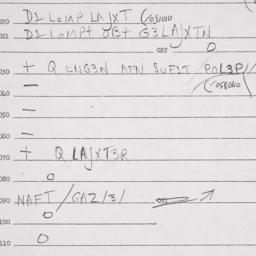 020 D1 LOMP LAJXT (058010
021 D1 LOMP+ OB+ G3LAJXTN
022 O
030 + Q ENG3N ATN SUFIT /POL3P//
— (058010
040
050 —
060 —
070 + Q LAJXT3R
080 O
090 NAFT /GAZ/3/
100 O
110 O